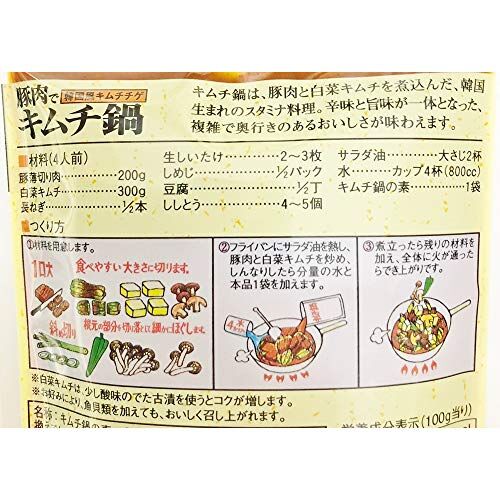 豚肉で 韓国風キムチチゲ
キムチ鍋
キムチ鍋は、豚肉と白菜キムチを煮込んだ、韓国
生まれのスタミナ料理。辛味と旨味が一体となった、
複雑で奥行きのあるおいしさが味わえます。
■材料(4人前)
豚薄切り肉…………200g
白菜キムチ…………300g
長ねぎ……………½本
生しいたけ……………2〜3枚
しめじ……………½パック
豆腐……………½丁
ししとう……………4〜5個
サラダ油……………大さじ2杯
水……………カップ4杯(800cc)
キムチ鍋の素……………1袋
■つくり方
①材料を用意します。
1口大
食べやすい大きさに切ります。
斜め切り
根元の部分を切り落として細かにほぐします。
②フライパンにサラダ油を熱し、
豚肉と白菜キムチを炒め、
しんなりしたら分量の水と
本品1袋を加えます。
水
4カップ
③煮立ったら残りの材料を
加え、全体に火が通った
らでき上がりです。
※白菜キムチは、少し酸味のでた古漬を使うとコクが増します。
※お好みにより、魚貝類を加えても、おいしく召し上がれます。
名称:キムチ鍋の素
栄養成分表示(100g当り)